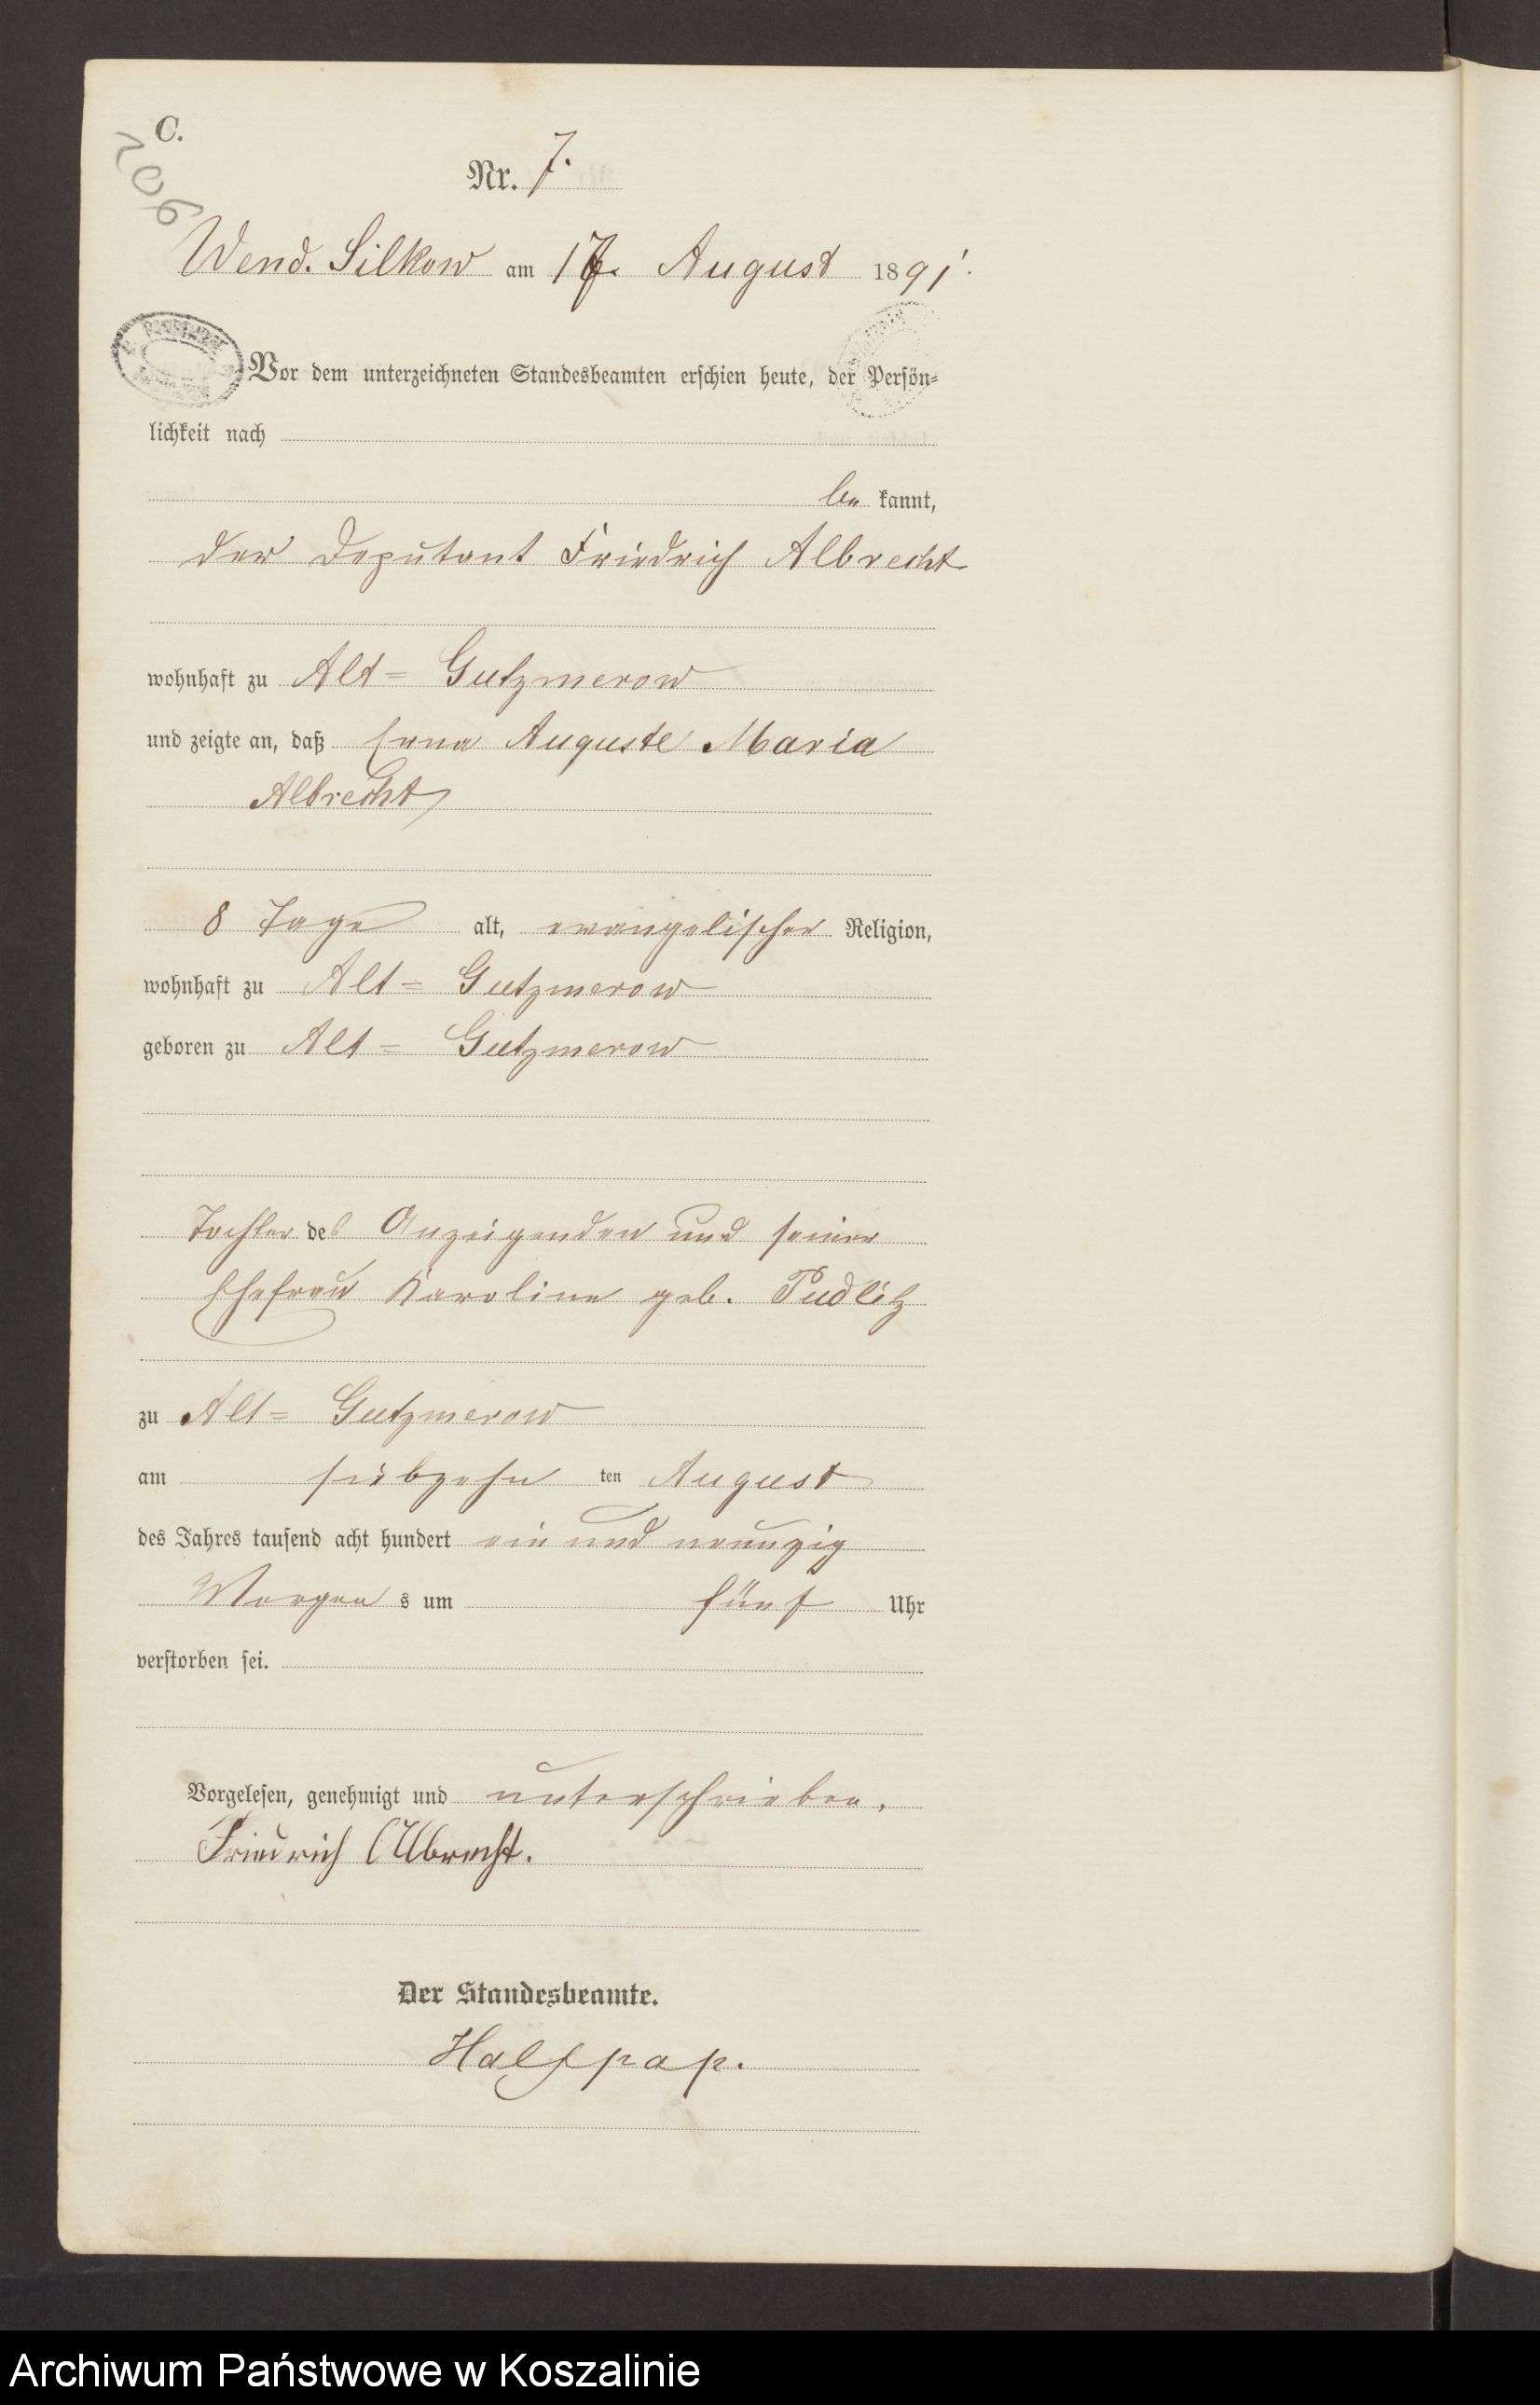 C.
206
Nr. 7.
Wend. Silkow am 17. August 1891.
Vor dem unterzeichneten Standesbeamten erschien heute, der Persön-
lichkeit nach
be kannt,
der Deputant Friedrich Albrecht
wohnhaft zu Alt- Gutzmerow
und zeigte an, daß Erna Auguste Maria
Albrecht
8 Tage alt, evangelischer Religion,
wohnhaft zu Alt- Gutzmerow
geboren zu Alt- Gutzmerow
Tochter des Anzeigenden und seiner
Ehefrau Karoline geb. Pudlitz
zu Alt- Gutzmerow
am siebzehn ten August
des Jahres tausend acht hundert ein und neunzig
Morgen s um fünf Uhr
verstorben sei.
Vorgelesen, genehmigt und unterschrieben.
Friedrich Albrecht.
Der Standesbeamte.
Halfpap.
Archiwum Państwowe w Koszalinie